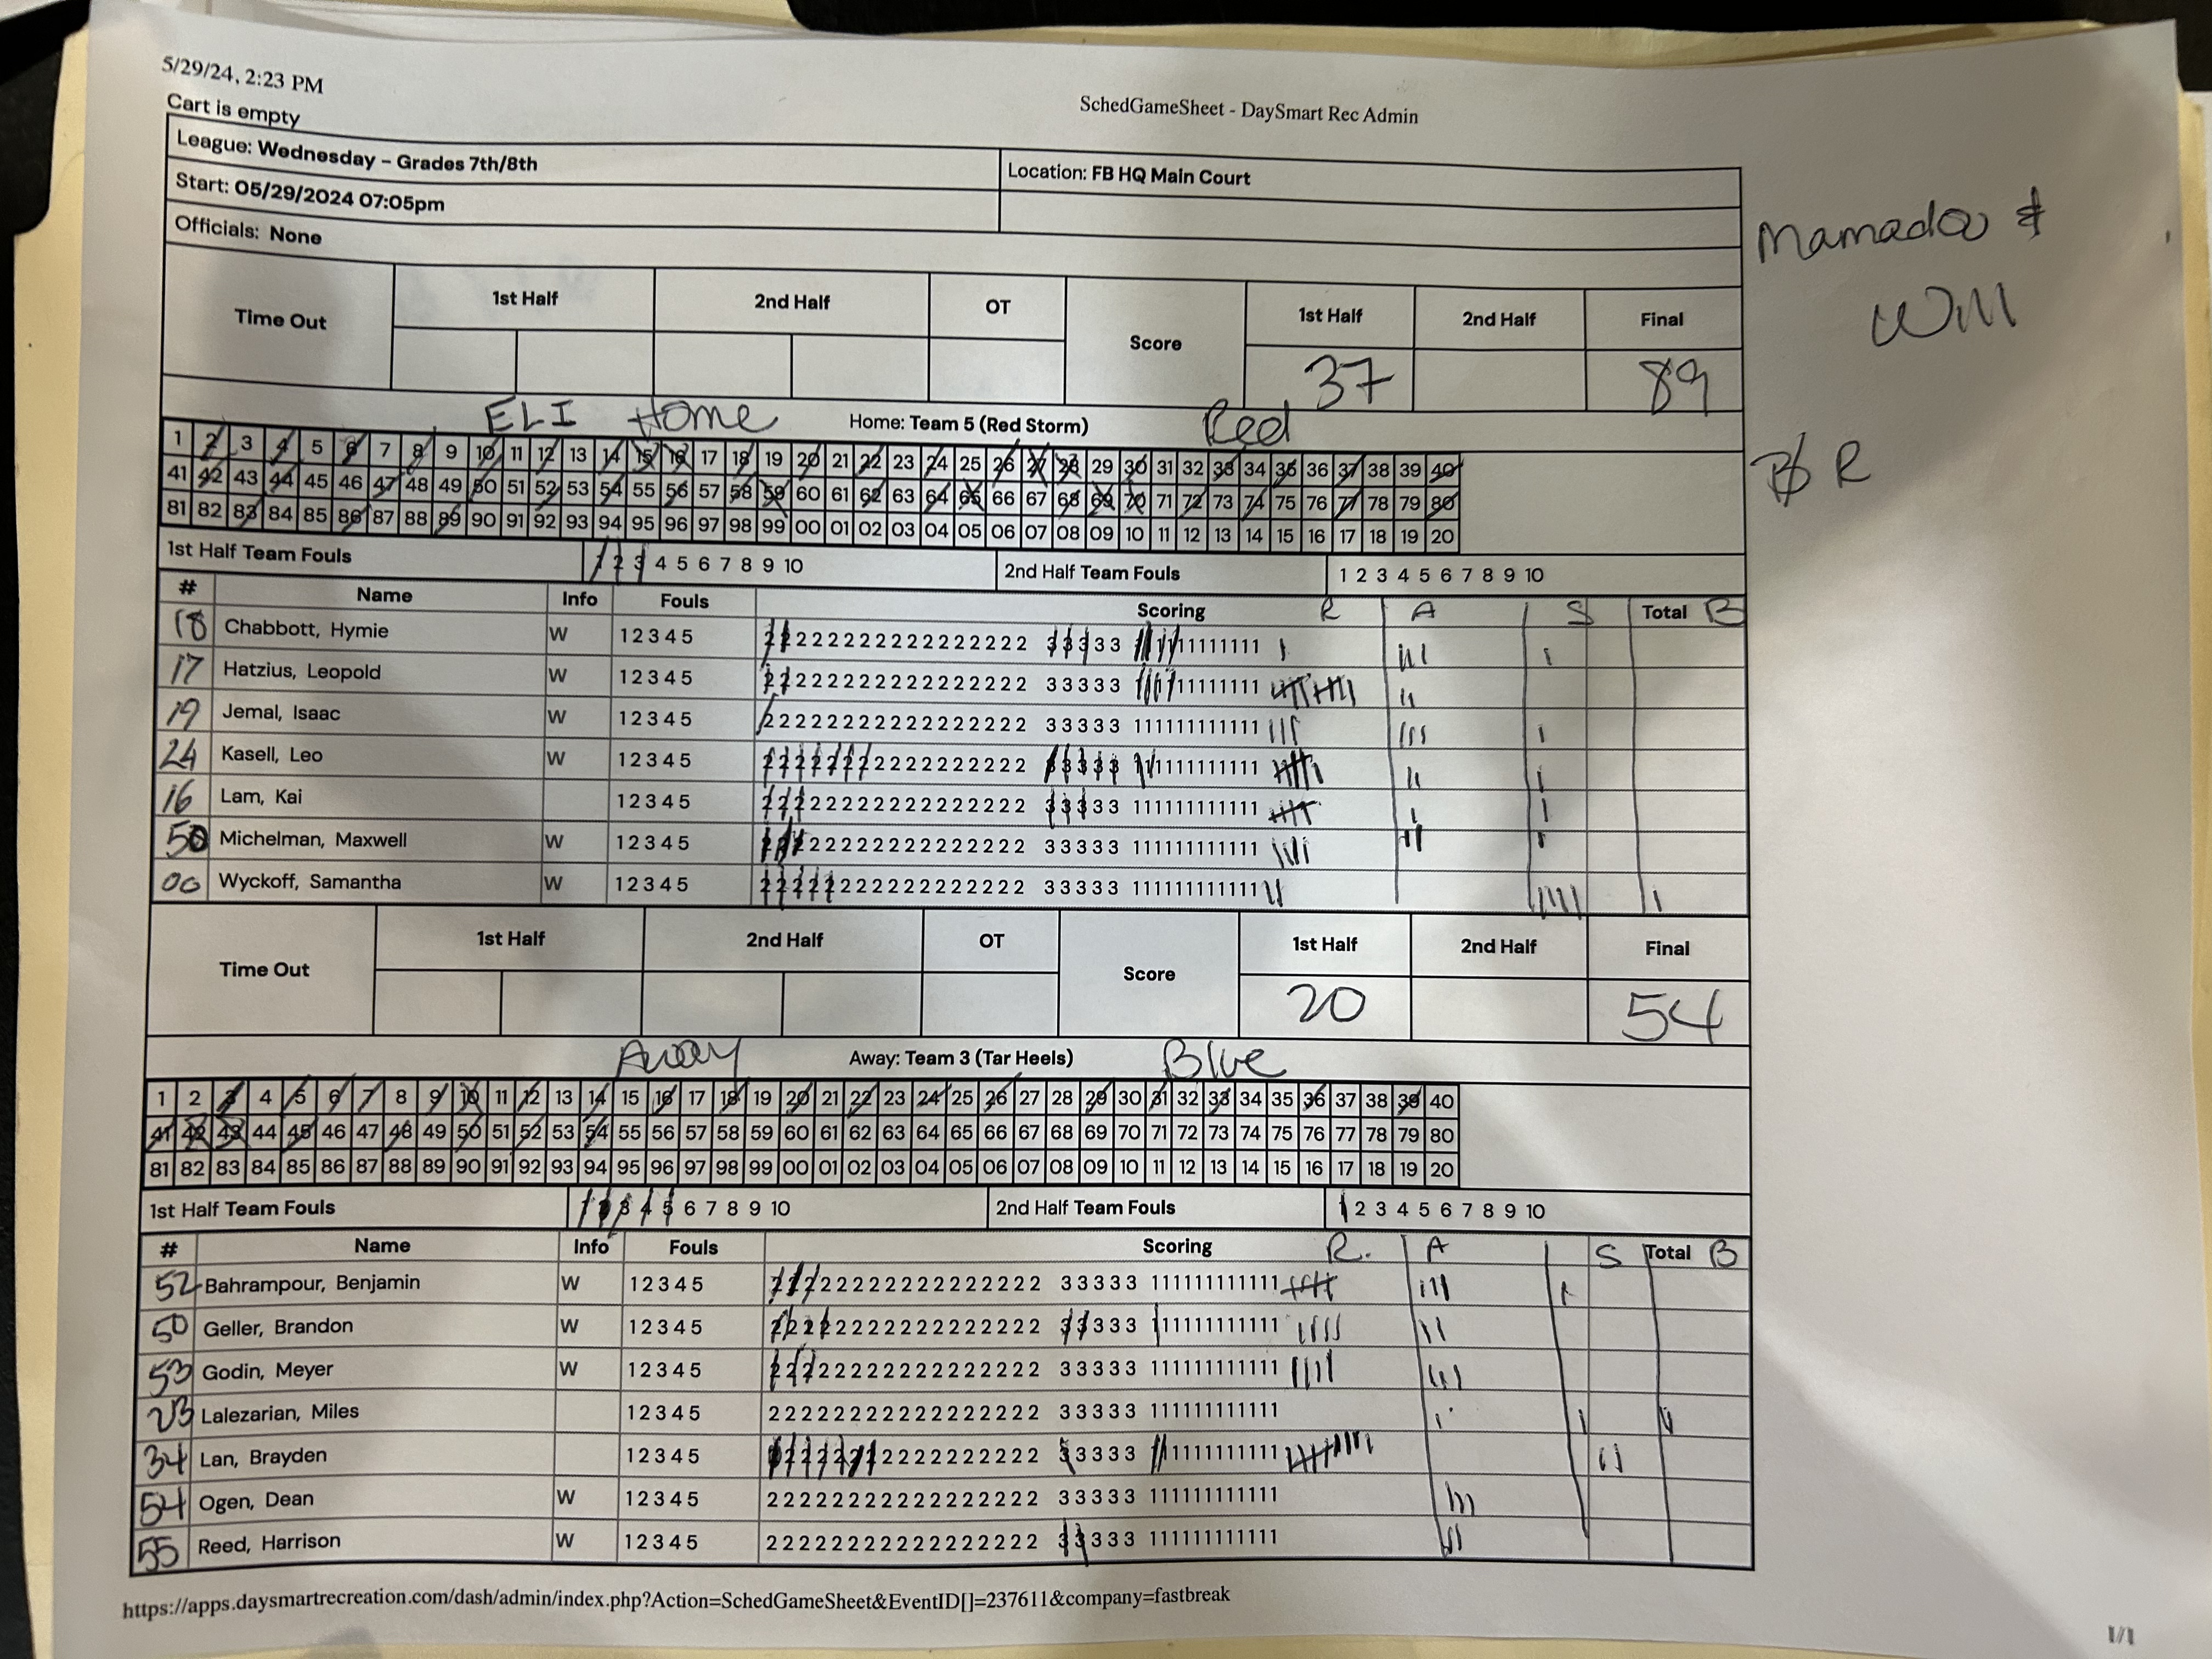 5/29/24, 2:23 PM
SchedGameSheet - DaySmart Rec Admin
Cart is empty
League: Wednesday - Grades 7th/8th
Location: FB HQ Main Court
Start: 05/29/2024 07:05pm
Officials: None
Time Out 1st Half 2nd Half OT Score 1st Half 2nd Half Final
37 89
ELI Home Home: Team 5 (Red Storm) Red
1 2 3 4 5 6 7 8 9 10 11 12 13 14 15 16 17 18 19 20 21 22 23 24 25 26 27 28 29 30 31 32 33 34 35 36 37 38 39 40
41 42 43 44 45 46 47 48 49 50 51 52 53 54 55 56 57 58 59 60 61 62 63 64 65 66 67 68 69 70 71 72 73 74 75 76 77 78 79 80
81 82 83 84 85 86 87 88 89 90 91 92 93 94 95 96 97 98 99 00 01 02 03 04 05 06 07 08 09 10 11 12 13 14 15 16 17 18 19 20
1st Half Team Fouls 1 2 3 4 5 6 7 8 9 10 2nd Half Team Fouls 1 2 3 4 5 6 7 8 9 10
# Name Info Fouls Scoring R A S Total B
18 Chabbott, Hymie W 1 2 3 4 5 2222222222222222 33333 111111111111
17 Hatzius, Leopold W 1 2 3 4 5 2222222222222222 33333 111111111111
19 Jemal, Isaac W 1 2 3 4 5 2222222222222222 33333 111111111111
24 Kasell, Leo W 1 2 3 4 5 2222222222222222 33333 111111111111
16 Lam, Kai 1 2 3 4 5 2222222222222222 33333 111111111111
50 Michelman, Maxwell W 1 2 3 4 5 2222222222222222 33333 111111111111
00 Wyckoff, Samantha W 1 2 3 4 5 2222222222222222 33333 111111111111
Time Out 1st Half 2nd Half OT Score 1st Half 2nd Half Final
20 54
Away Away: Team 3 (Tar Heels) Blue
1 2 3 4 5 6 7 8 9 10 11 12 13 14 15 16 17 18 19 20 21 22 23 24 25 26 27 28 29 30 31 32 33 34 35 36 37 38 39 40
41 42 43 44 45 46 47 48 49 50 51 52 53 54 55 56 57 58 59 60 61 62 63 64 65 66 67 68 69 70 71 72 73 74 75 76 77 78 79 80
81 82 83 84 85 86 87 88 89 90 91 92 93 94 95 96 97 98 99 00 01 02 03 04 05 06 07 08 09 10 11 12 13 14 15 16 17 18 19 20
1st Half Team Fouls 1 2 3 4 5 6 7 8 9 10 2nd Half Team Fouls 1 2 3 4 5 6 7 8 9 10
# Name Info Fouls Scoring R. A S Total B
52 Bahrampour, Benjamin W 1 2 3 4 5 2222222222222222 33333 111111111111
50 Geller, Brandon W 1 2 3 4 5 2222222222222222 33333 111111111111
53 Godin, Meyer W 1 2 3 4 5 2222222222222222 33333 111111111111
23 Lalezarian, Miles 1 2 3 4 5 2222222222222222 33333 111111111111
34 Lan, Brayden 1 2 3 4 5 2222222222222222 33333 111111111111
54 Ogen, Dean W 1 2 3 4 5 2222222222222222 33333 111111111111
55 Reed, Harrison W 1 2 3 4 5 2222222222222222 33333 111111111111
https://apps.daysmartrecreation.com/dash/admin/index.php?Action=SchedGameSheet&EventID[]=237611&company=fastbreak
1/1
Mamadou &
Will
R